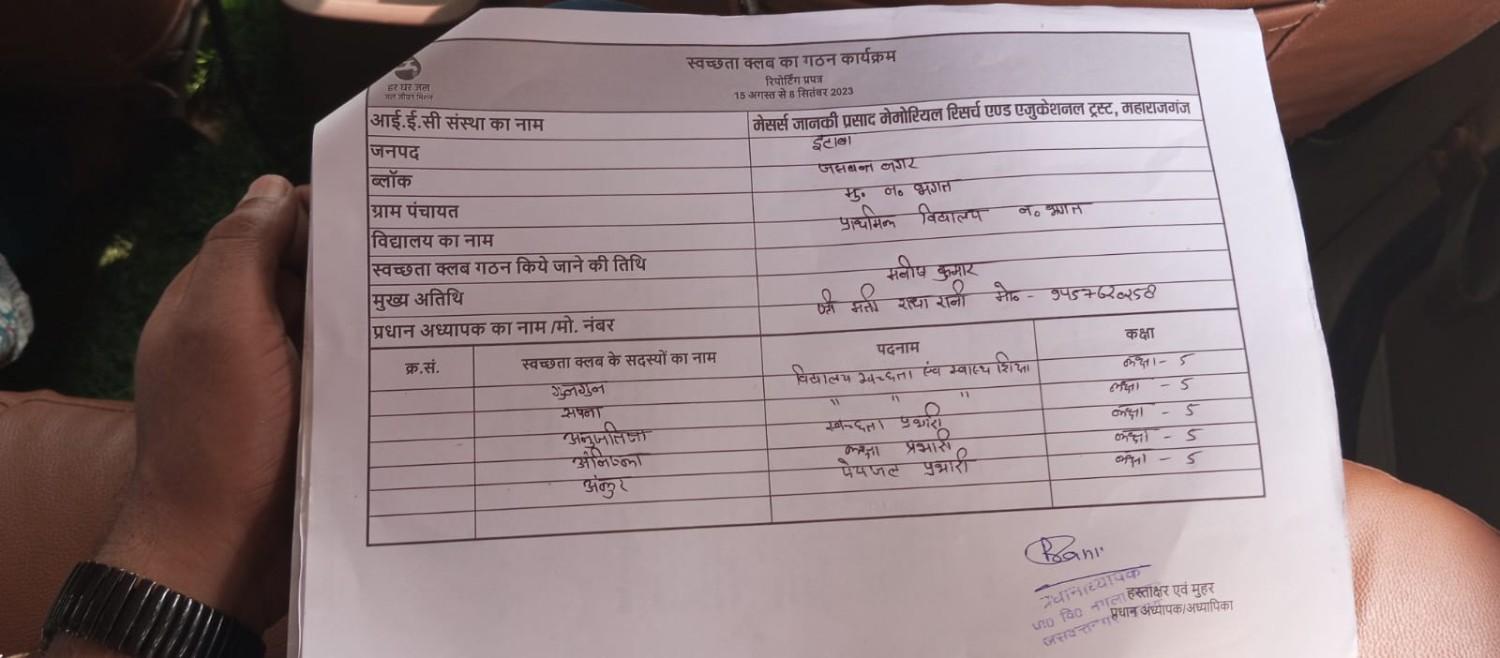 हर घर जल
जल जीवन मिशन
स्वच्छता क्लब का गठन कार्यक्रम
रिपोर्टिंग प्रपत्र
15 अगस्त से 8 सितंबर 2023
आई.ई.सी संस्था का नाम मेसर्स जानकी प्रसाद मेमोरियल रिसर्च एण्ड एजुकेशनल ट्रस्ट, महाराजगंज
जनपद इटावा
ब्लॉक जसवन्त नगर
ग्राम पंचायत मु० न० भगत
विद्यालय का नाम प्राथमिक विद्यालय न० भगत
स्वच्छता क्लब गठन किये जाने की तिथि
मुख्य अतिथि मनीष कुमार
प्रधान अध्यापक का नाम /मो. नंबर श्री मती रानी मो० -
क्र.सं. स्वच्छता क्लब के सदस्यों का नाम पदनाम कक्षा
गुनगुन विद्यालय स्वच्छता एंव स्वास्थ्य शिक्षा कक्षा - 5
सपना " " " कक्षा - 5
स्वच्छता प्रभारी कक्षा - 5
कक्षा प्रभारी कक्षा - 5
अंकुर पेयजल प्रभारी कक्षा - 5
Rani
प्रधानाध्यापक
हस्ताक्षर एवं मुहर
प्रधान अध्यापक/अध्यापिका